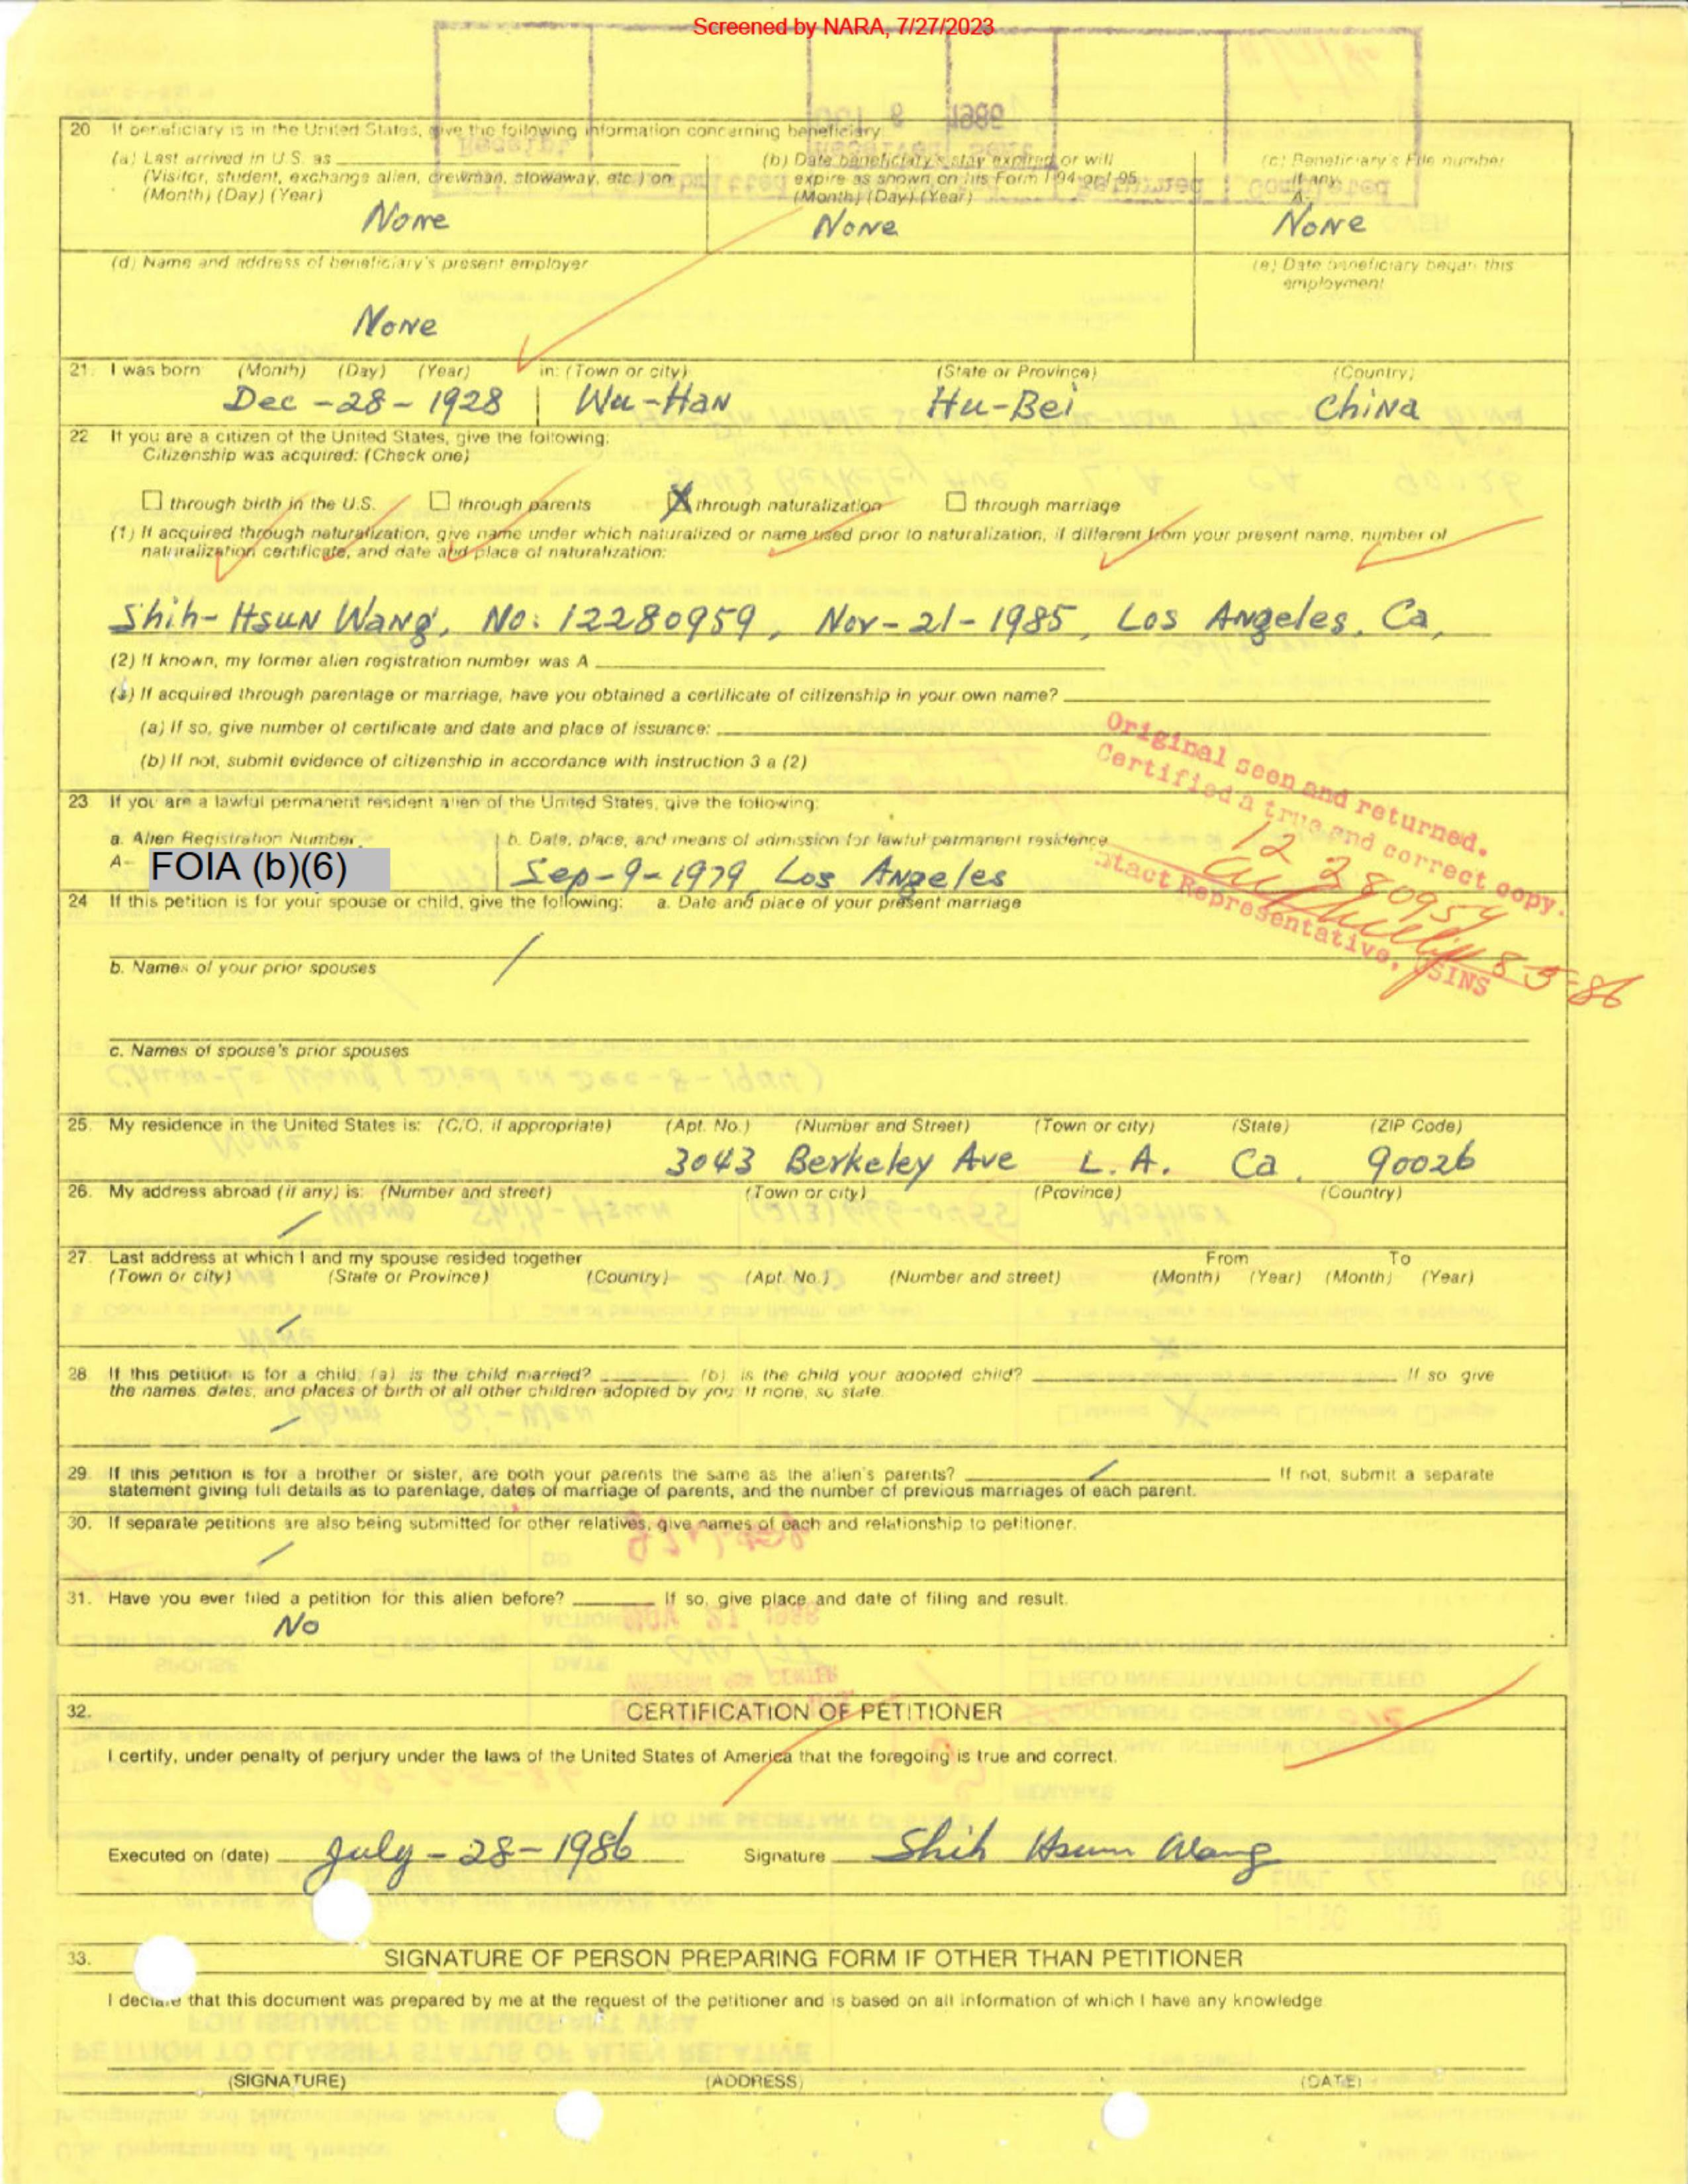 Screened by NARA, 7/27/2023
20 If beneficiary is in the United States, give the following information concerning beneficiary:
(a) Last arrived in U.S. as
(Visitor, student, exchange alien, crewman, stowaway, etc.) on
(Month) (Day) (Year)
None
(b) Date beneficiary's stay expired or will
expire as shown on his Form I-94 or I-95
(Month) (Day) (Year)
None
(c) Beneficiary's File number
if any
A-
None
(d) Name and address of beneficiary's present employer
None
(e) Date beneficiary began this
employment
21. I was born (Month) (Day) (Year) in: (Town or city) (State or Province) (Country)
Dec-28-1928 Wu-Han Hu-Bei China
22 If you are a citizen of the United States, give the following:
Citizenship was acquired: (Check one)
☐ through birth in the U.S. ☐ through parents ☒ through naturalization ☐ through marriage
(1) If acquired through naturalization, give name under which naturalized or name used prior to naturalization, if different from your present name, number of
naturalization certificate, and date and place of naturalization:
Shih-Hsun Wang, No: 12280959, Nov-21-1985, Los Angeles, Ca,
(2) If known, my former alien registration number was A
(3) If acquired through parentage or marriage, have you obtained a certificate of citizenship in your own name?
(a) If so, give number of certificate and date and place of issuance:
(b) If not, submit evidence of citizenship in accordance with instruction 3 a (2)
Original seen and returned.
Certified a true and correct copy.
12 280959
Contact Representative, USINS
8-5-86
23 If you are a lawful permanent resident alien of the United States, give the following:
a. Alien Registration Number
A- FOIA (b)(6)
b. Date, place, and means of admission for lawful permanent residence
Sep-9-1979 Los Angeles
24 If this petition is for your spouse or child, give the following: a. Date and place of your present marriage
b. Names of your prior spouses
c. Names of spouse's prior spouses
25. My residence in the United States is: (C/O, if appropriate) (Apt. No.) (Number and Street) (Town or city) (State) (ZIP Code)
3043 Berkeley Ave L.A. Ca. 90026
26. My address abroad (if any) is: (Number and street) (Town or city) (Province) (Country)
27. Last address at which I and my spouse resided together From To
(Town or city) (State or Province) (Country) (Apt. No.) (Number and street) (Month) (Year) (Month) (Year)
28 If this petition is for a child, (a) is the child married? (b) is the child your adopted child? If so give
the names, dates, and places of birth of all other children adopted by you. If none, so state.
29 If this petition is for a brother or sister, are both your parents the same as the alien's parents? If not, submit a separate
statement giving full details as to parentage, dates of marriage of parents, and the number of previous marriages of each parent.
30. If separate petitions are also being submitted for other relatives, give names of each and relationship to petitioner.
31. Have you ever filed a petition for this alien before? If so, give place and date of filing and result.
No
32. CERTIFICATION OF PETITIONER
I certify, under penalty of perjury under the laws of the United States of America that the foregoing is true and correct.
Executed on (date) July-28-1986 Signature Shih Hsun Wang
33. SIGNATURE OF PERSON PREPARING FORM IF OTHER THAN PETITIONER
I declare that this document was prepared by me at the request of the petitioner and is based on all information of which I have any knowledge
(SIGNATURE) (ADDRESS) (DATE)